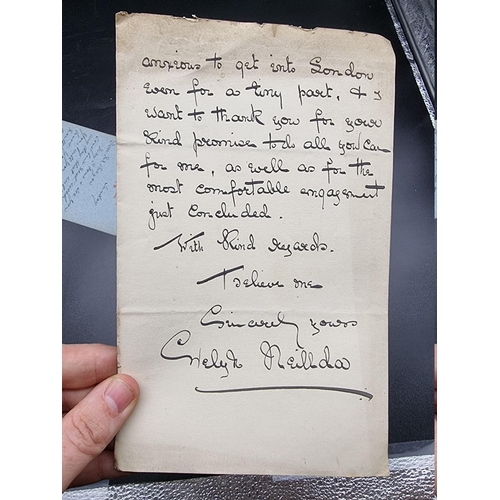 anxious to get into London
even for a tiny part, & I
want to thank you for your
kind promises to do all you can
for me, as well as for the
most comfortable engagement
just concluded.
With kind regards.
I believe me
Sincerely yours